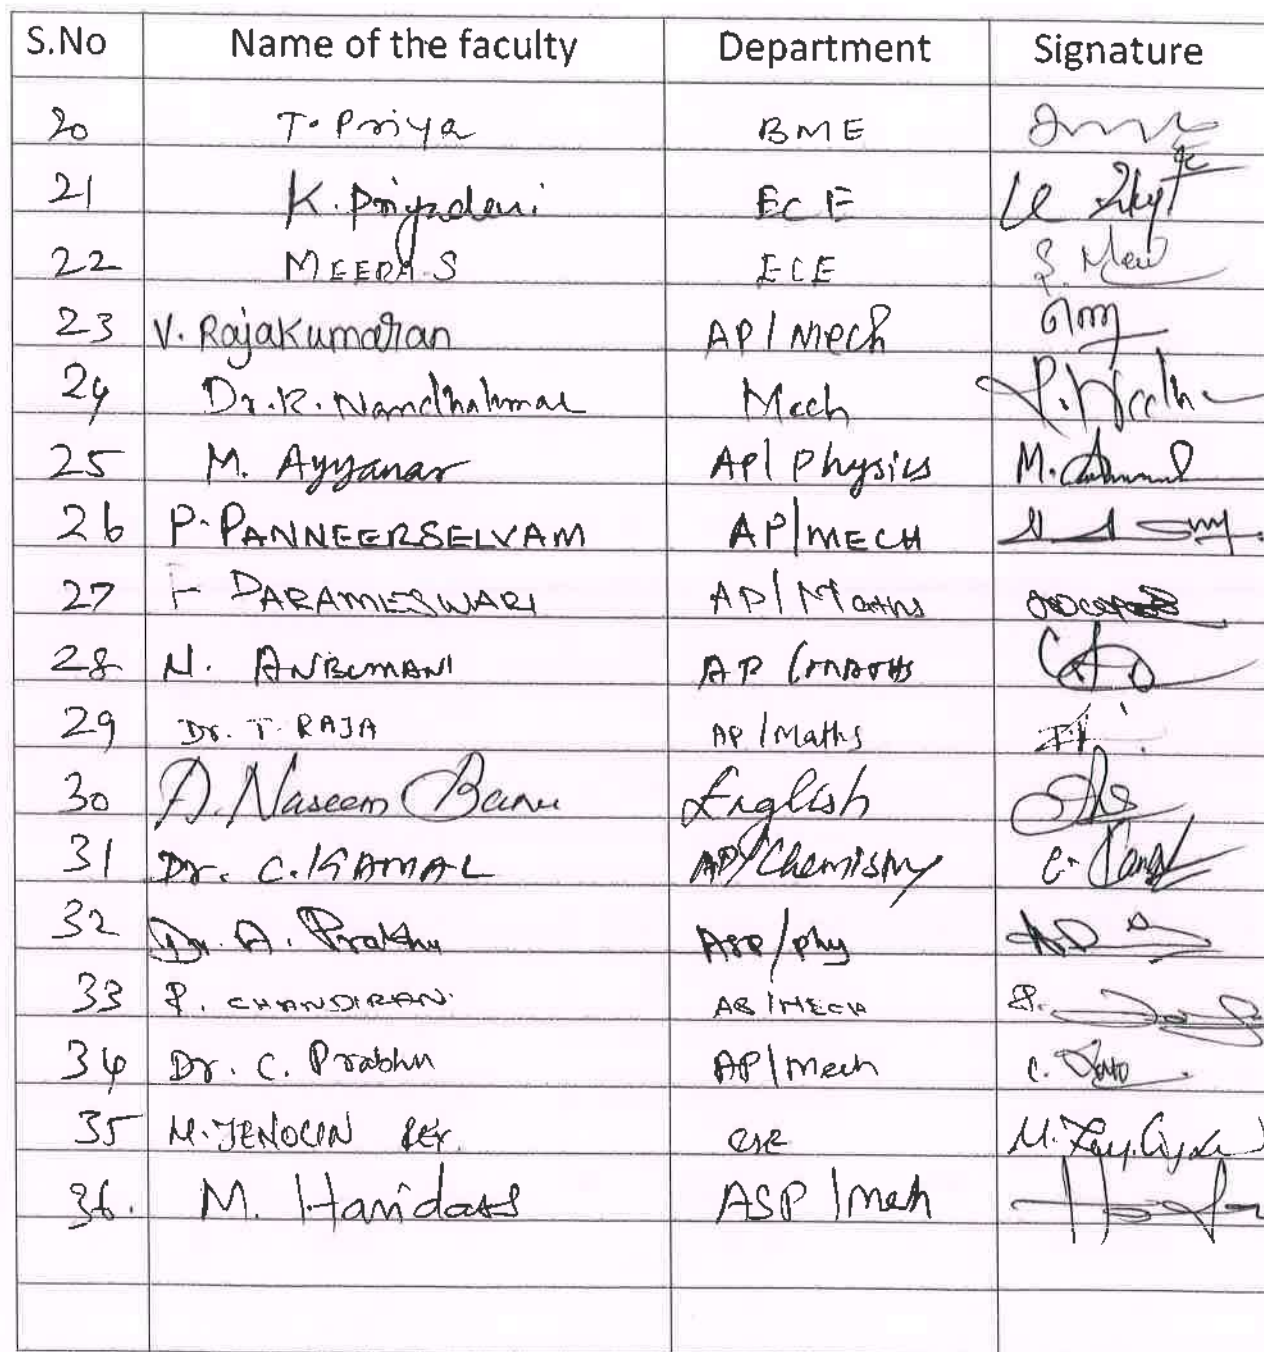 S.No Name of the faculty Department Signature
20 T. Priya BME
21 K. Priyadevi ECE
22 MEERA S ECE S. Meer
23 V. Rajakumaran AP/Mech
24 Dr. R. Mech
25 M. Ayyanar AP/Physics M.
26 P. PANNEERSELVAM AP/MECH
27 PARAMESWARI AP/Maths
28 N. ANBUMANI AP/MATHS
29 Dr. T. RAJA AP/Maths
30 A. Naseem Banu English
31 Dr. C. KAMAL AP/Chemistry C. Kamal
32 Dr. A. Prabhu ASP/Phy
33 P. CHANDIRAN. AP/MECH
34 Dr. C. Prabhu AP/Mech C.
35 M. JENOLIN REX. CSE M.
36. M. Haridass ASP/Mech